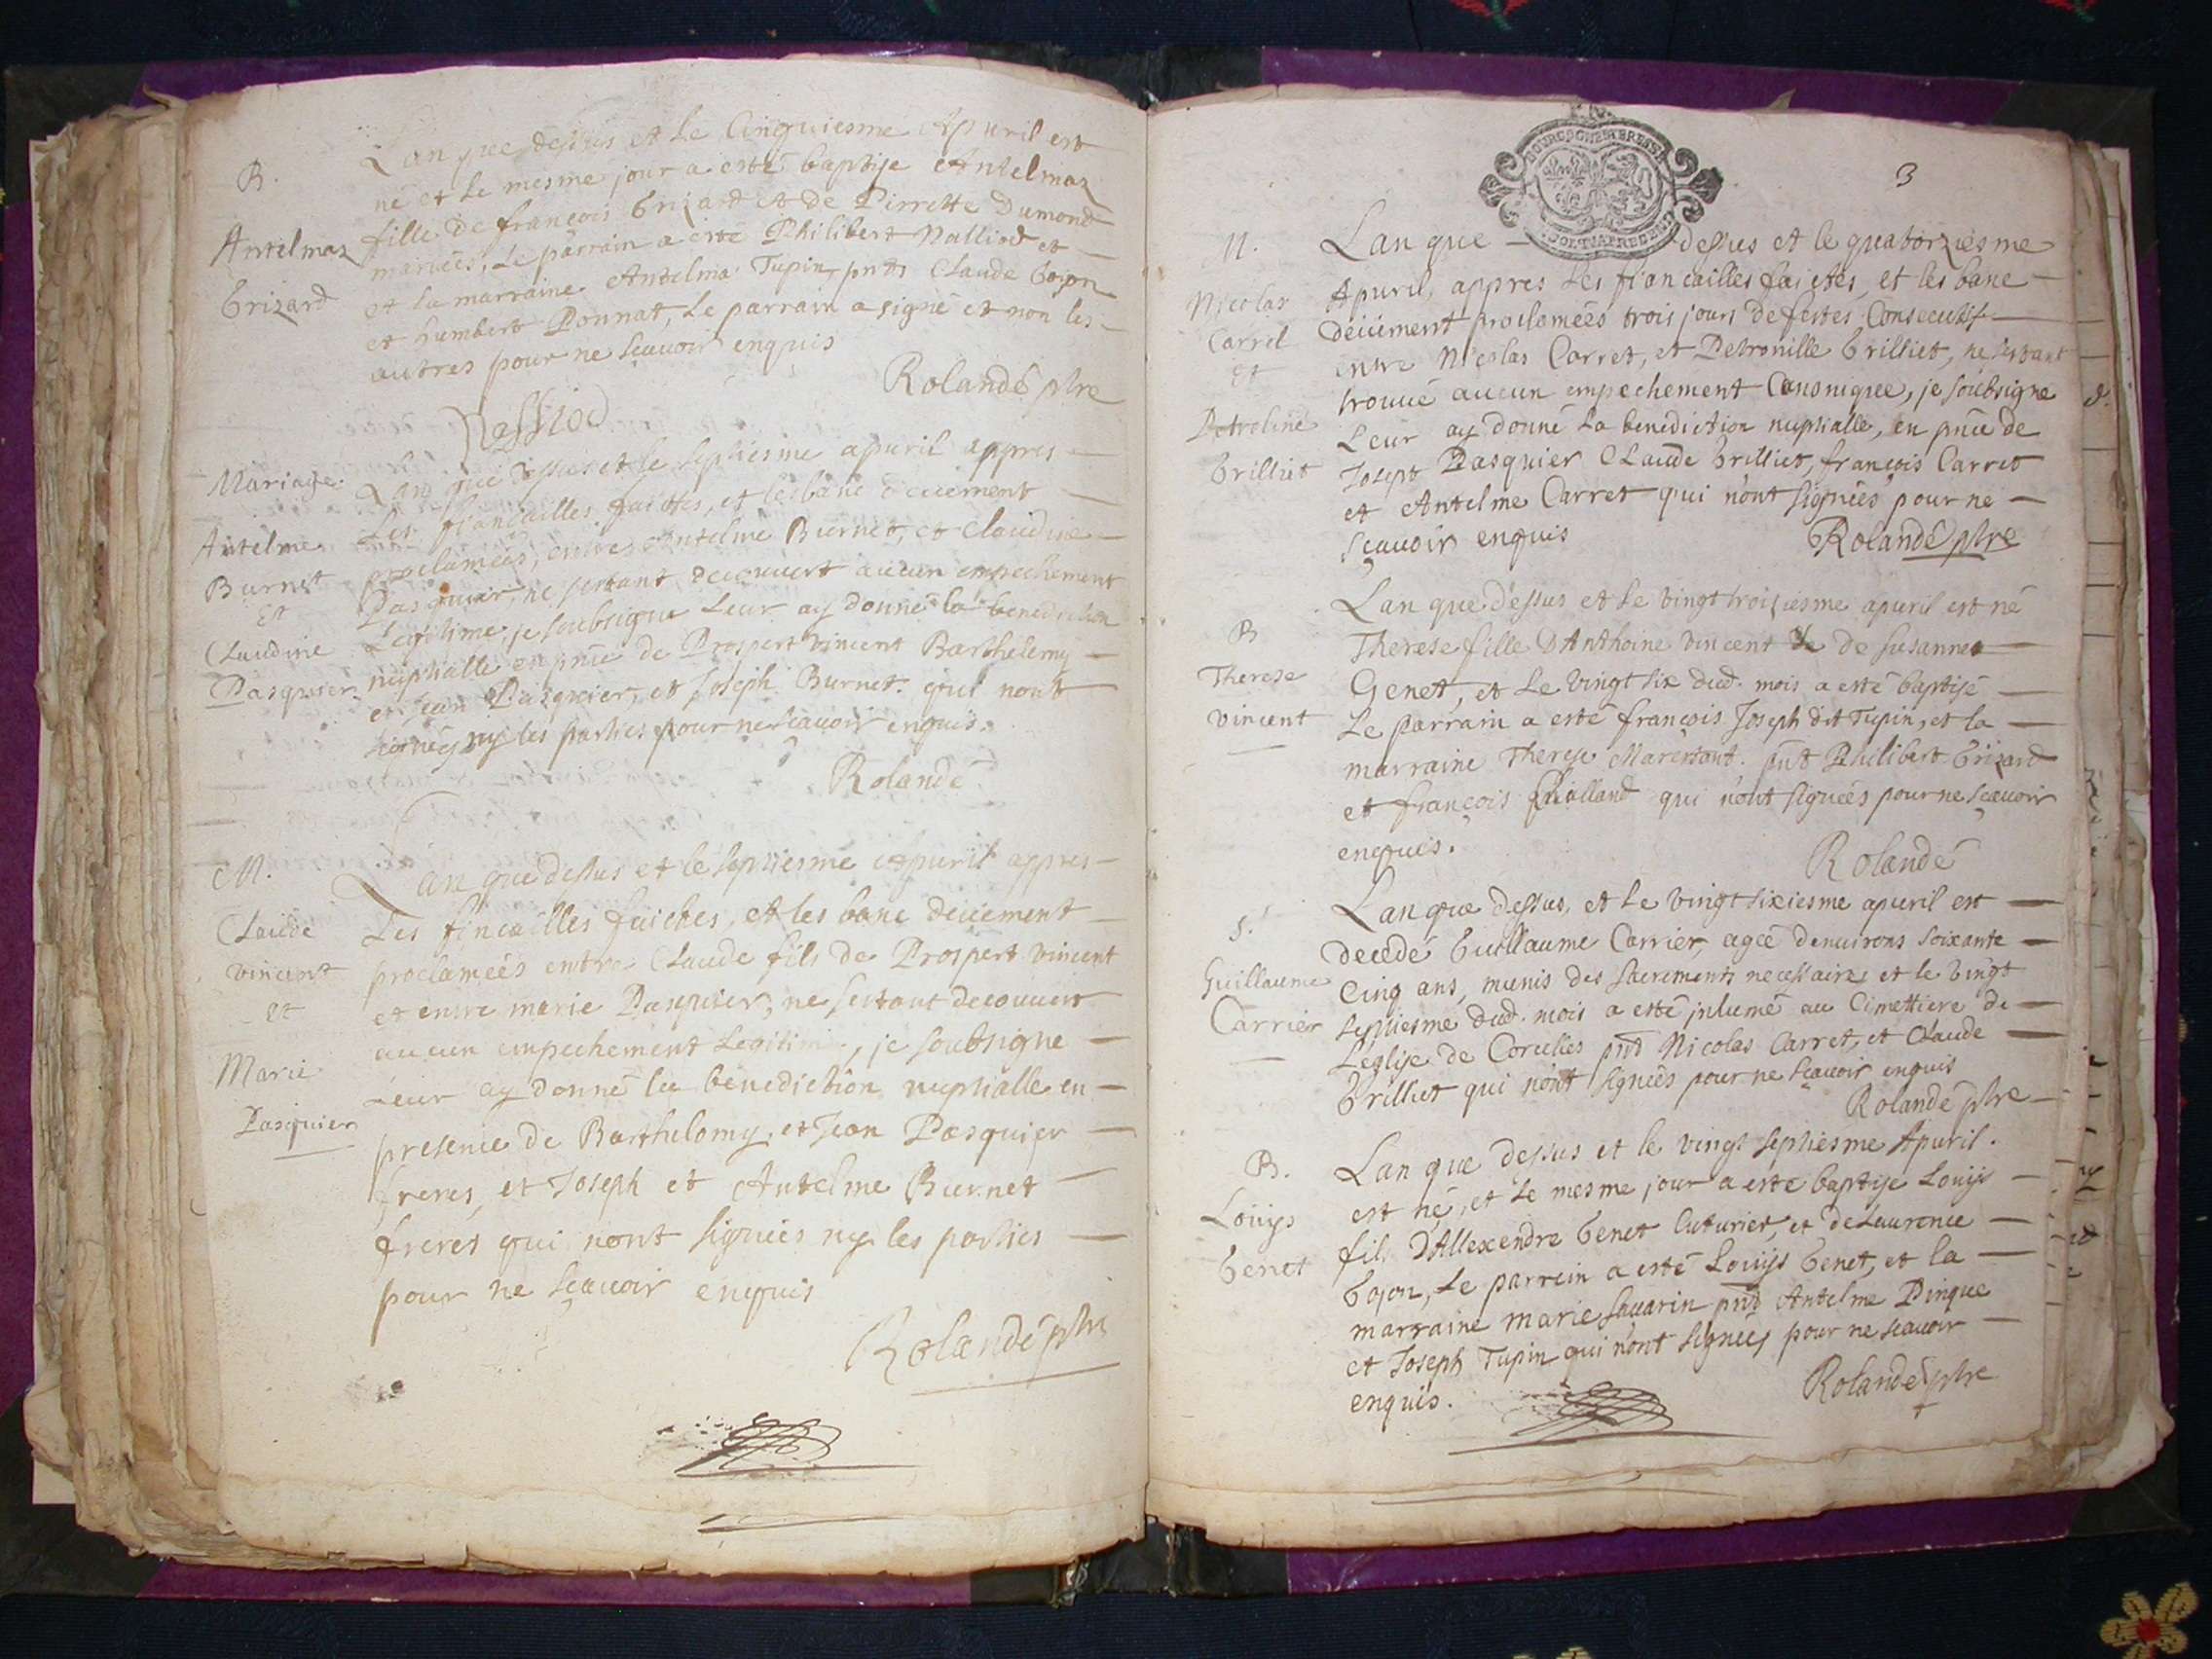 B.
Antelmaz
Grizard
Lan que dessus et le Cinquiesme Apuril est
né et le mesme jour a esté baptisé Antelmaz
fille de françois Grizard et de Pirrette Dumond
mariées, Le parrain a esté Philibert Nalliod et
et la marraine Antelma Tupin, pnts Claude Goyon
et humbert Ponnat, Le parrain a signé et non les
autres pour ne sçauoir enquis
Rolandé ptre
Mariage.
Antelme
Burnet
Et
Claudine
Pasquier
Lan que dessus et le septiesme apuril appres
Les fiancailles faittes, et les banc deüement
proclamées, entre Antelme Burnet, et Claudine
Pasquier, ne sestant decouuert aucun empechement
Legitime, je soubsigne Leur ay donné la benediction
nuptialle en pnce de Prospert Vincent Barthelemy
et Jean Pasquier, et Joseph Burnet qui nont
signés ny les parties pour ne sçauoir enquis.
Rolandé
M.
Claude
Vincent
et
Marie
Pasquier
Lan que dessus et le septiesme Apuril appres
Les fincailles faictes, et les banc deüement
proclamées entre Claude fils de Prospert Vincent
et entre marie Pasquier, ne sestant decouuert
aucun empechement Legitime, je soubsigne
Leur ay donné la benediction nuptialle en
presence de Barthelomy, et Jean Pasquier
freres, et Joseph et Antelme Burnet
freres qui nont signées ny les parties
pour ne sçauoir enquis
Rolandé ptre
3
M.
Nicolas
Carret
et
Petroline
Grilliet
Lan que dessus et le quatorziesme
Apuril, appres les fiancailles faictes, et les banc
deüement proclamées trois jours de festes Consecutif
entre Nicolas Carret, et Petronille Grilliet, ne sestant
trouué aucun empechement Canonique, je soubsigne
Leur ay donné la benediction nuptialle, en pnce de
Joseph Pasquier Claude Grilliet, françois Carret
et Antelme Carret qui n'ont signées pour ne
sçauoir enquis
Rolandé ptre
B
Therese
Vincent
Lan que dessus et le vingt troisiesme apuril est né
Therese fille D'Anthoine Vincent de Susanne
Genet, et le vingt six dud. mois a esté baptisé
Le parrain a esté françois Joseph dit Tupin, et la
marraine Therese pnt Philibert Grizard
et françois qui n'ont signées pour ne sçauoir
enquis.
Rolandé
S.
Guillaume
Carrier
Lan que dessus, et le vingt sixiesme apuril est
decedé Guillaume Carrier, agée denuirons soixante
Cinq ans, munis des sacrements necessaires et le vingt
septiesme dud. mois a esté inhumé au Cimettiere de
Leglise de Corcelles pnt Nicolas Carret, et Claude
Grilliet qui n'ont signées pour ne sçauoir enquis
Rolandé ptre
B.
Loüys
Genet
Lan que dessus et le vingt septiesme Apuril.
est né, et le mesme jour a esté baptisé Loüys
fils D'Allexendre Genet Cuturier, et de Laurence
Goyon, Le parrein a esté Loüys Genet, et la
marraine marie Sauarin pnt Antelme Pinque
et Joseph Tupin qui n'ont signées pour ne sçauoir
enquis.
Rolandé ptre